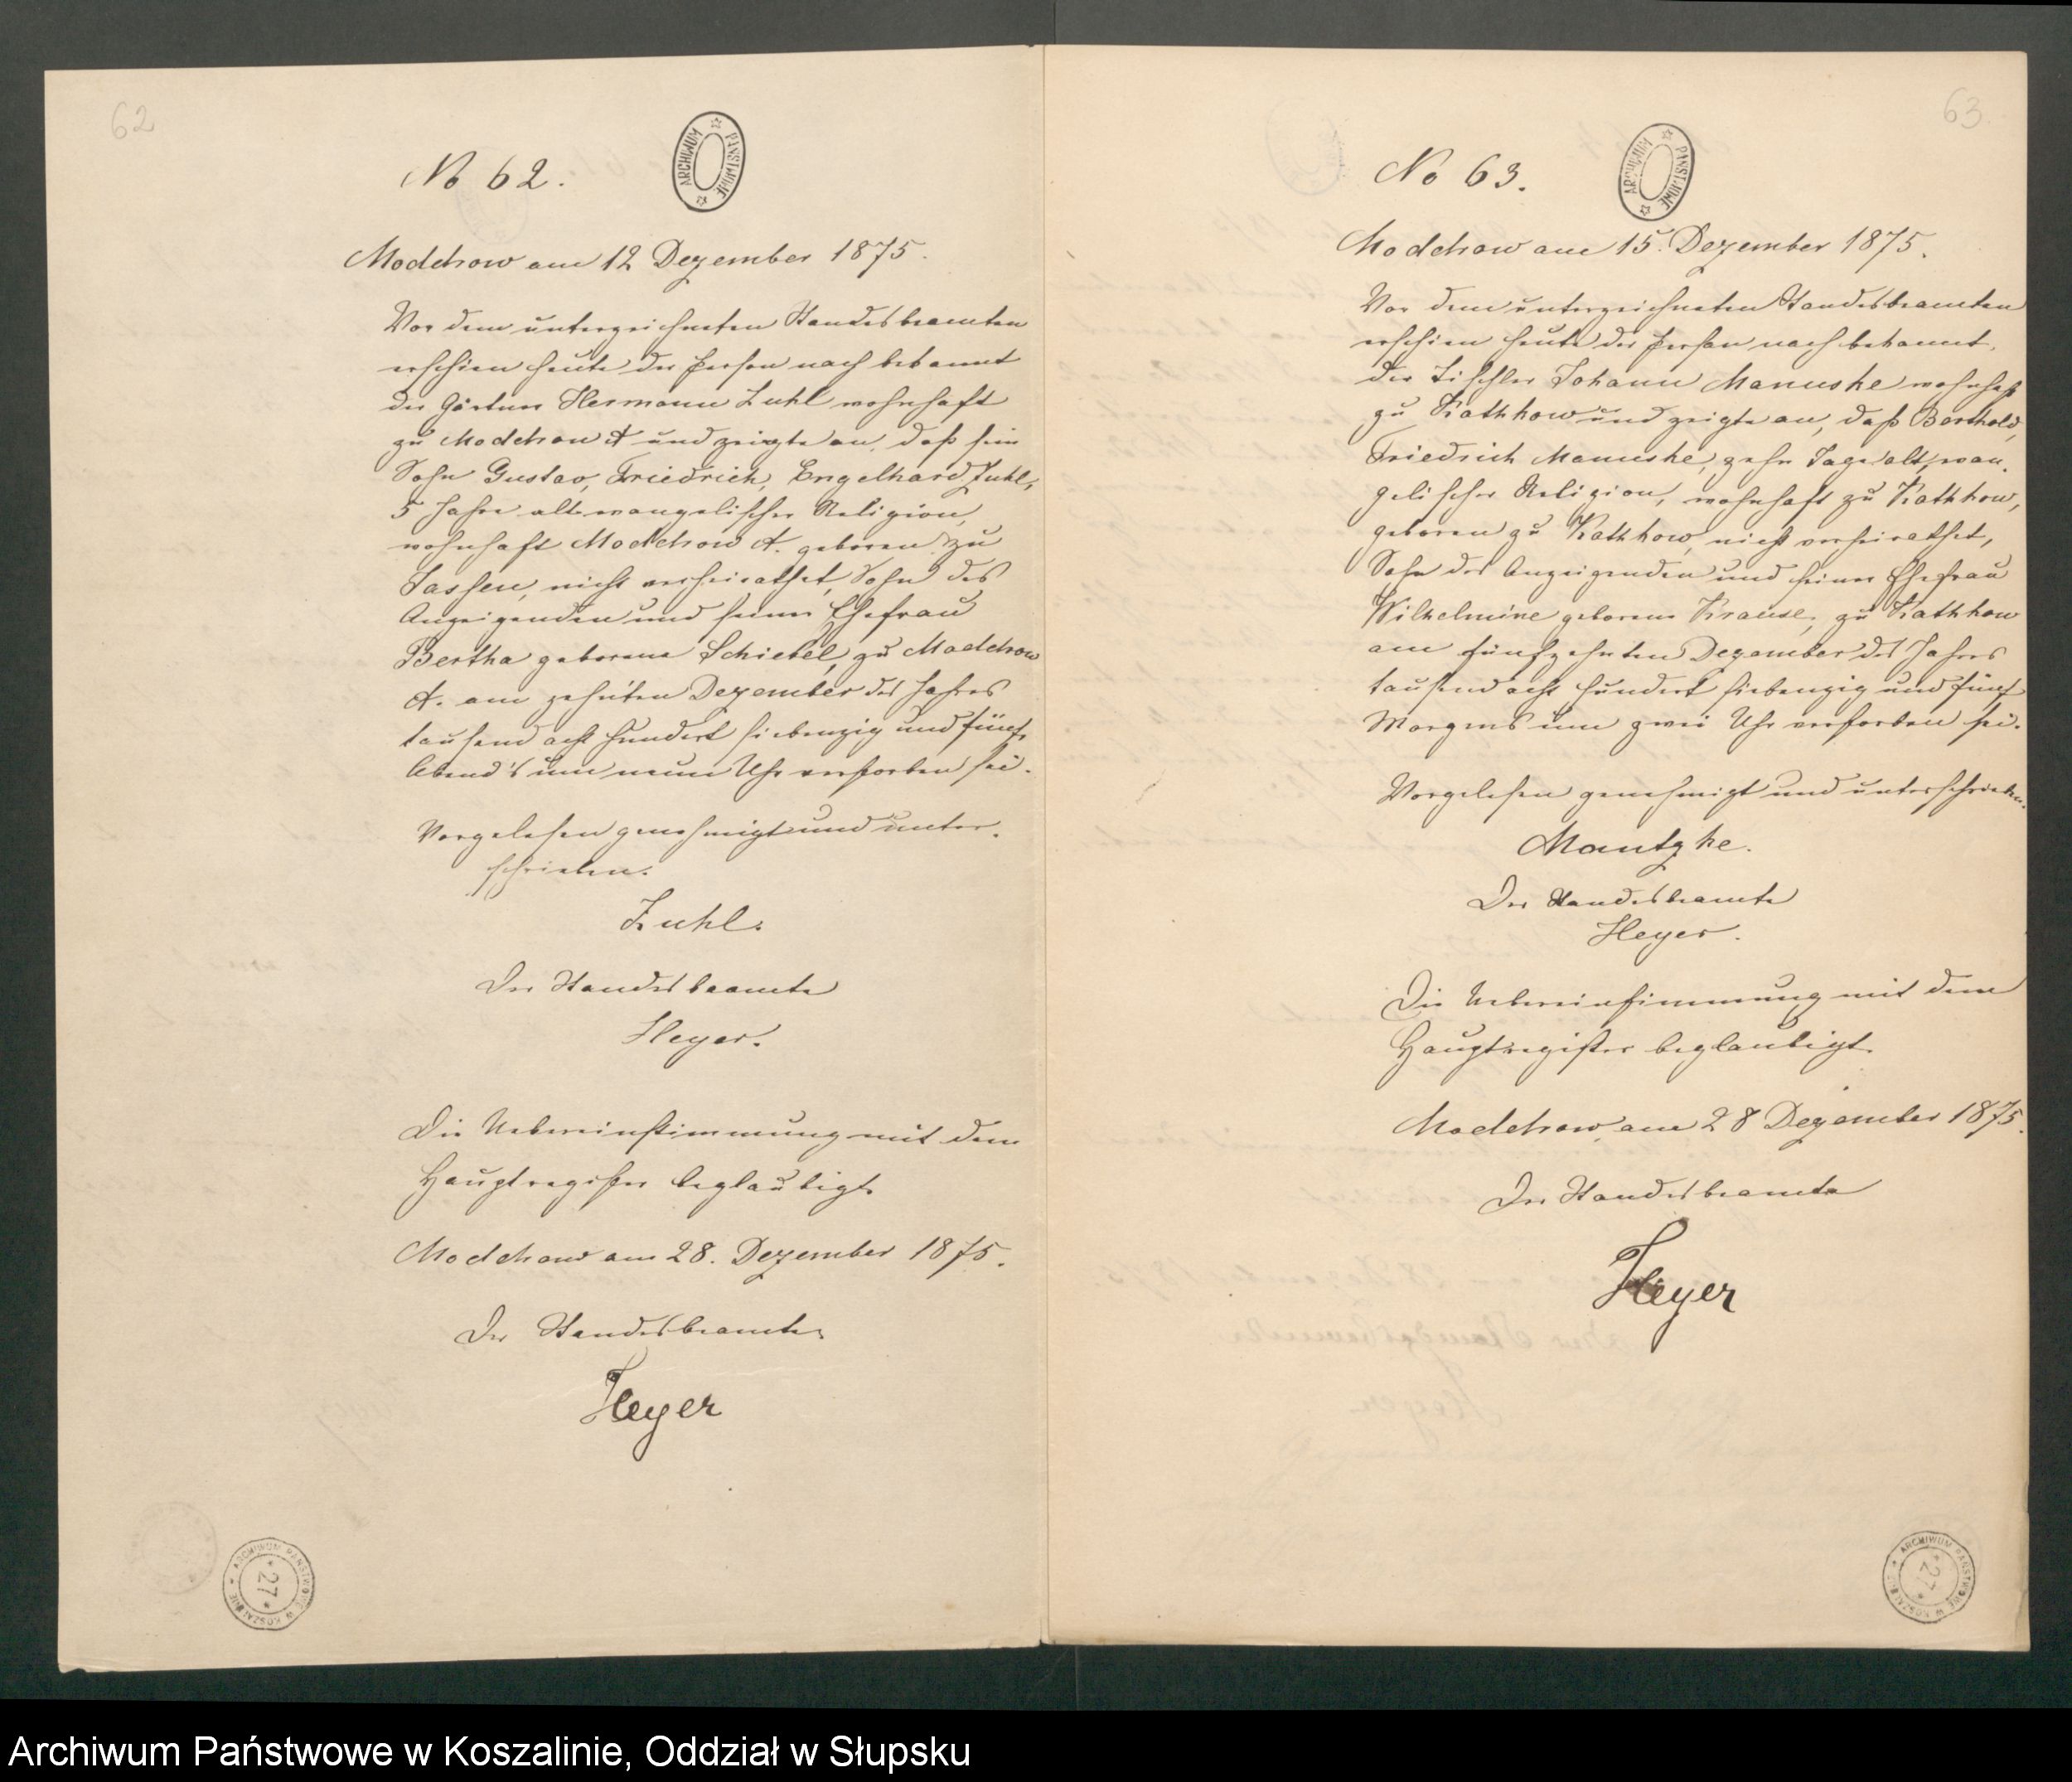 62
No 62.
ARCHIWUM PAŃSTWOWE
Moddrow am 12 Dezember 1875.
Vor dem unterzeichneten Standesbeamten
erschien heute der Person nach bekannt
der Gärtner Hermann Zuhl wohnhaft
zu Moddrow A und zeigte an, daß sein
Sohn Gustav, Friedrich, Engelhard Zuhl,
5 Jahre alt evangelischer Religion,
wohnhaft Moddrow A. geboren zu
Jassen, nicht verheirathet, Sohn des
Anzeigenden und seiner Ehefrau
Bertha geborene Schiebel, zu Moddrow
A. am zehnten Dezember des Jahres
tausend acht hundert siebenzig und fünf
Abend's um neun Uhr verstorben sei.
Vorgelesen genehmigt und unter-
schrieben.
Zuhl.
Der Standesbeamte
Heyer.
Die Uebereinstimmung mit dem
Hauptregister beglaubigt
Moddrow am 28. Dezember 1875.
Der Standesbeamte
Heyer
ARCHIWUM PAŃSTWOWE W KOSZALINIE
27
63.
No 63.
ARCHIWUM PAŃSTWOWE
Moddrow am 15. Dezember 1875.
Vor dem unterzeichneten Standesbeamten
erschien heute der Person nach bekannt,
der Tischler Johann Manuske wohnhaft
zu Kathkow und zeigte an, daß Berthold,
Friedrich Manuske, zehn Tage alt, evan-
gelischer Religion, wohnhaft zu Kathkow,
geboren zu Kathkow, nicht verheirathet,
Sohn des Anzeigenden und seiner Ehefrau
Wilhelmine geborene Krause, zu Kathkow
am fünfzehnten Dezember des Jahres
tausend acht hundert siebenzig und fünf
Morgens um zwei Uhr verstorben sei.
Vorgelesen genehmigt und unterschrieben.
Mantzke.
Der Standesbeamte
Heyer.
Die Uebereinstimmung mit dem
Hauptregister beglaubigt
Moddrow, am 28 Dezember 1875.
Der Standesbeamte
Heyer
ARCHIWUM PAŃSTWOWE W KOSZALINIE
27
Archiwum Państwowe w Koszalinie, Oddział w Słupsku